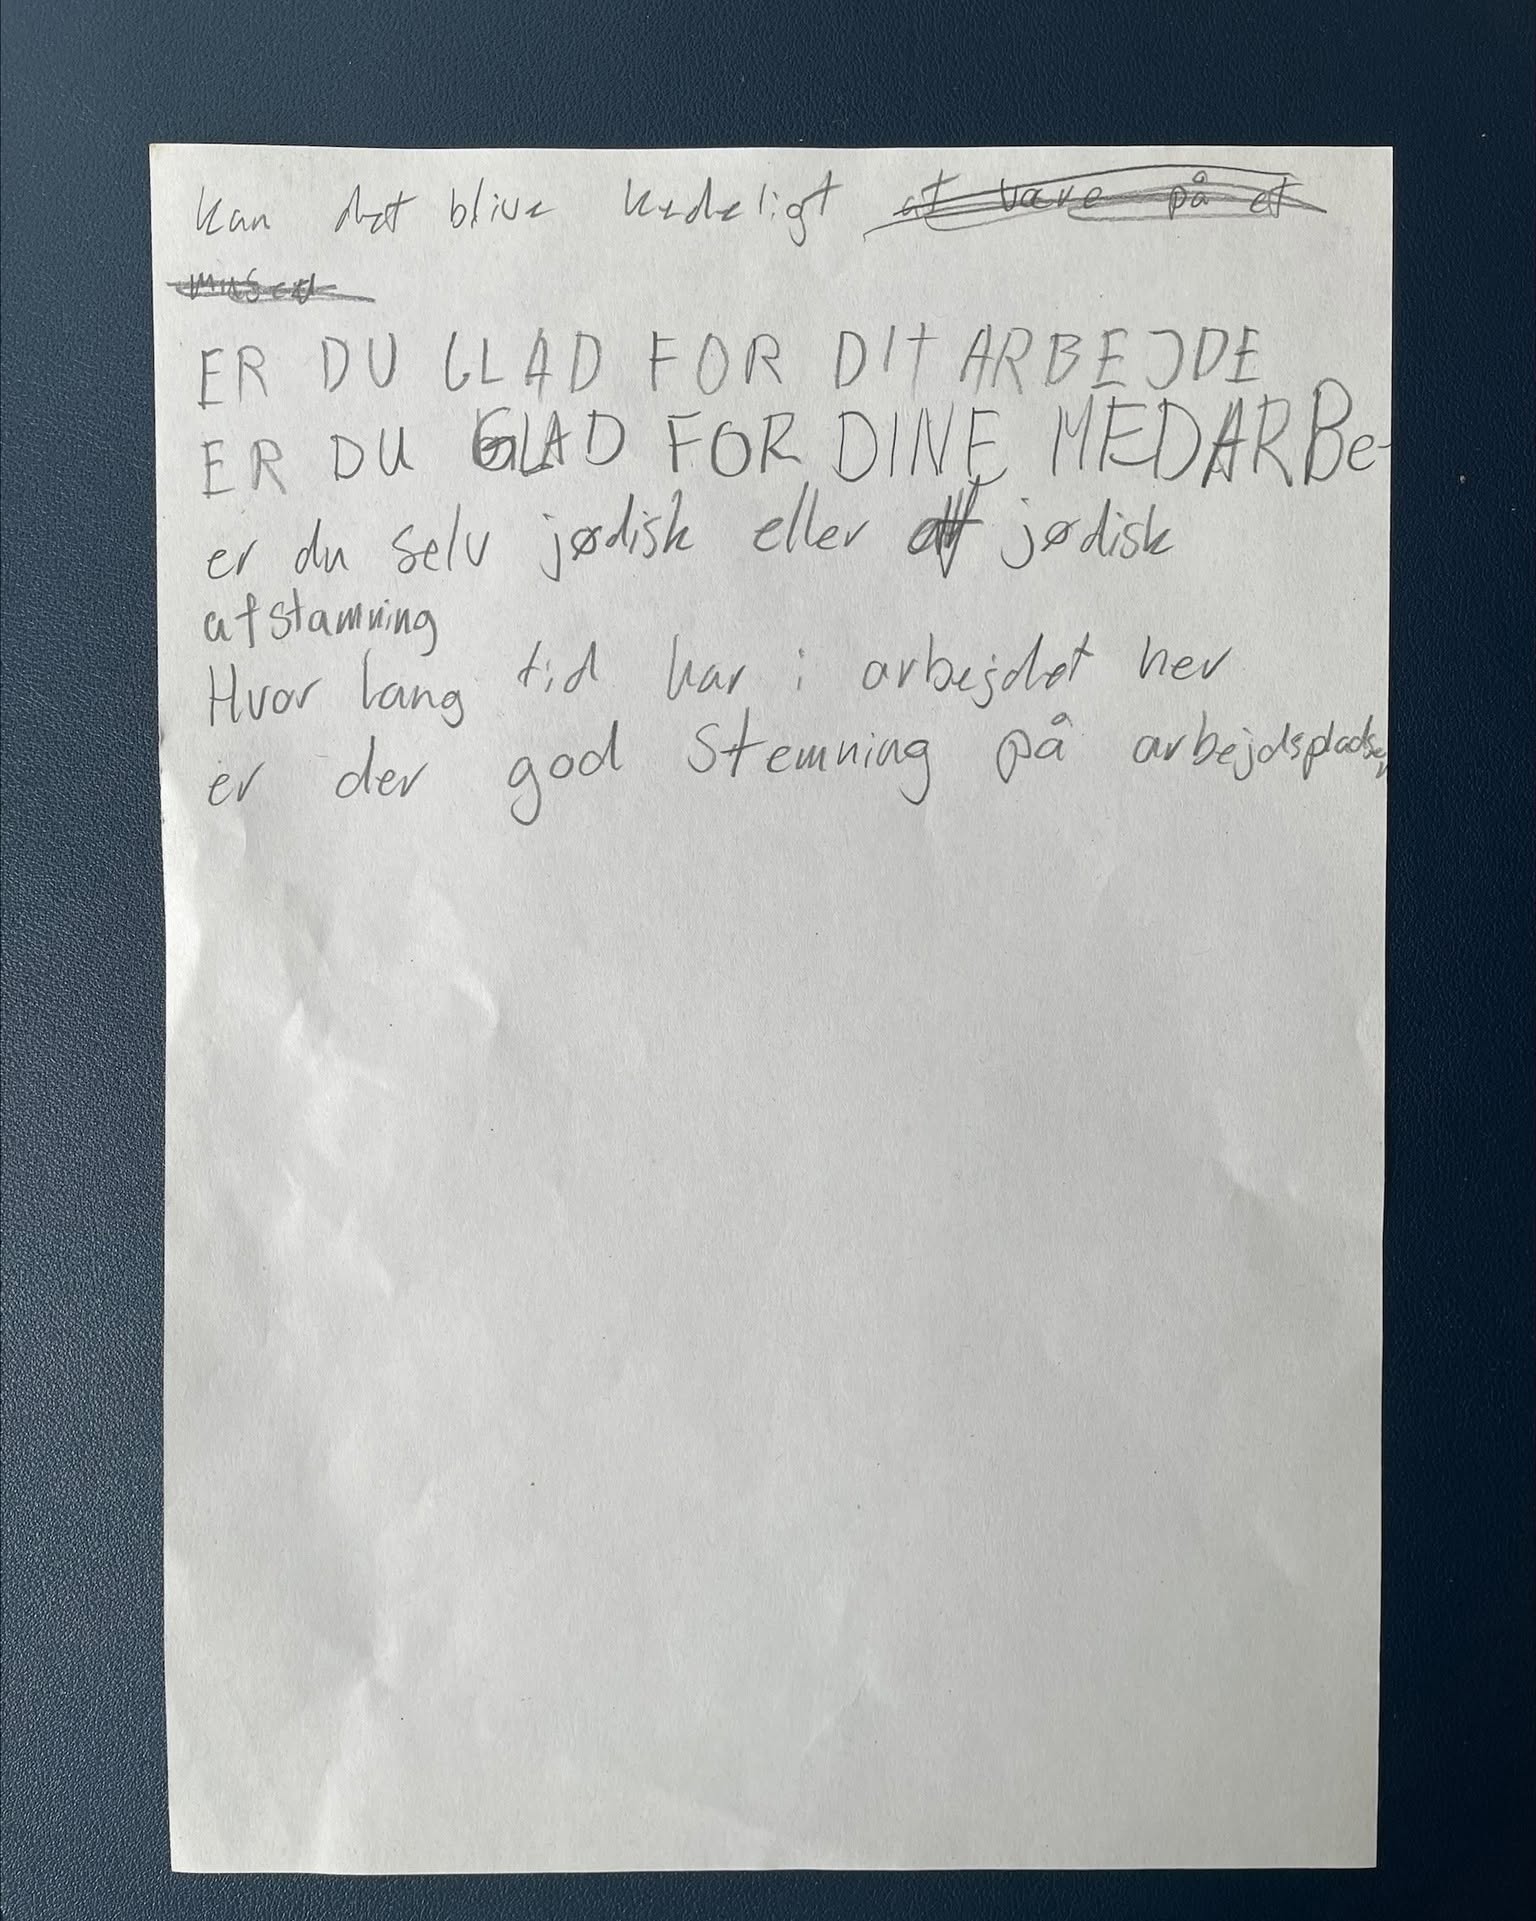 kan det blive kedeligt at være på et
museu
ER DU GLAD FOR DIT ARBEJDE
ER DU GLAD FOR DINE MEDARBe-
er du selv jødisk eller af jødisk
afstamning
Hvor lang tid har i arbejdet her
er der god stemning på arbejdspladsen